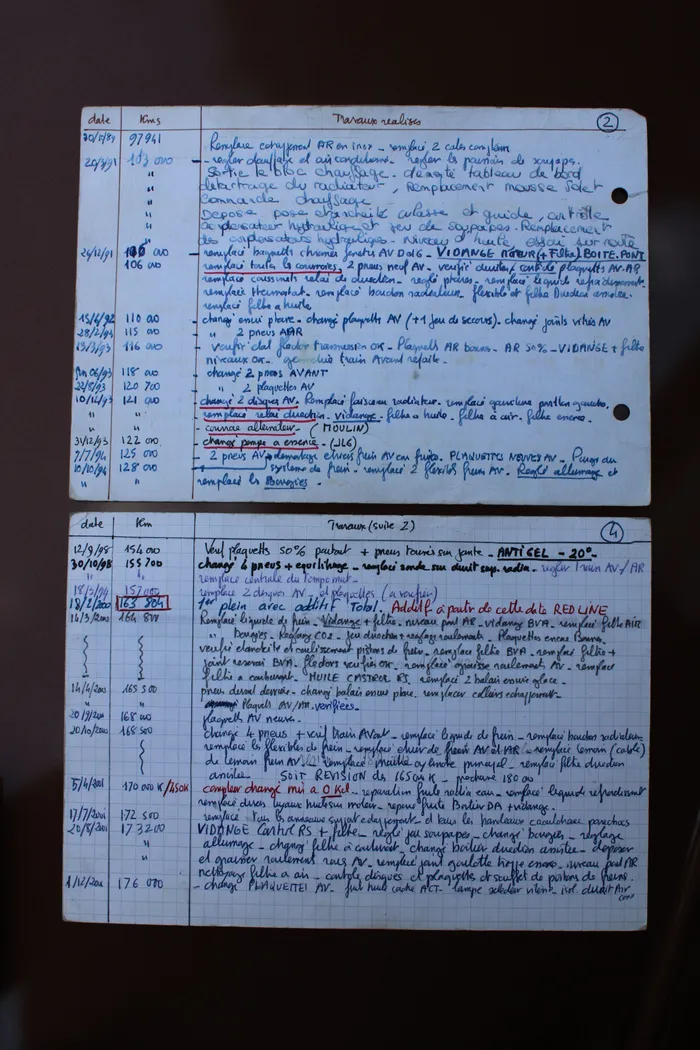 date Kms Travaux realisés 2
97941 Remplacé echappement AR en inox - remplacé 2 cales
20/3/91 103 000 - regler chauffage et air conditionné - regler
" Sortie le bloc chauffage - tableau de bord
" détartrage du radiateur, Remplacement mousse
" Commande chauffage
" Depose pose etancheité culasse et guide, contrôle
" hydraulique et jeu de soupapes. Remplacement
" des hydrauliques - Niveau d'huile, essai sur route
24/12/91 106 000 - remplacé baguette chromée AV D&G - VIDANGE MOTEUR (+ Filtre) BOITE. PONT
106 000 remplacé toutes les courroies, 2 pneus neuf AV - verifié direction, controlé plaquettes AV-AR
remplacé coussinets relai de direction - reglé - remplacé liquide refroidissement
remplacé thermostat - remplacé bouchon radiateur flexible et filtre Direction
remplacé filtre a huile
15/6/92 110 000 - changé phare - changé plaquettes AV (+1 jeu de secours). changé joints vitres AV
28/2/94 115 000 " 2 pneus AR
19/3/93 116 000 - verifié transmission OK - Plaquettes AR bonnes - AR 50% - VIDANGE + filtre
niveaux OK - train Avant refaite -
06/93 118 000 - changé 2 pneus AVANT
22/8/93 120 700 - " 2 plaquettes AV
10/12/93 121 000 - changé 2 disques AV. Remplacé faisceau radiateur - remplacé gauche
" " remplacé relai direction - vidange - filtre a huile - filtre à air - filtre
" " - courroie alternateur - (MOULIN)
31/12/93 122 000 - changé pompe a essence - (JLG)
7/7/94 125 000 - 2 pneus AV demontage frein AV PLAQUETTES NEUVES AV - Purge du
10/10/94 128 000 système de frein - remplacé 2 flexibles frein AV. Reglé allumage et
" " remplacé les Bougies.
date Km Travaux (suite 2) 4
12/9/98 154 000 Verif plaquettes 50% partout + pneus sur jante - ANTIGEL - 20° -
30/10/98 155 700 changé 4 pneus + equilibrage - remplacé sonde sur durit sup. radia - regler train AV/AR
" " remplacé centrale
157 000 remplacé 2 disques AV - et plaquettes (a verifier)
18/2/2000 163 804 1er plein avec additif Total. Additif à partir de cette date REDLINE
16/3/2000 164 800 Remplacé liquide de frein - Vidange + filtre - niveau pont AR - vidange BVA - remplacé filtre AIR
" Bougies - Reglage CO2 - Jeu direction + reglage roulements - Plaquettes encore Bonnes -
verifié etancheité et coulissement pistons de frein - remplacé filtre BVA - remplacé filtre +
joint reservoir BVA. verifiés OK - remplacé graisse roulements AV - remplacé
filtre a carburant - HUILE CASTROL RS. remplacé 2 balais essuie glace -
14/4/2000 165 500 pneu droit - changé balais - remplacer colliers echappement -
" Plaquett AV/AR verifiées -
20/9/2000 168 000 plaquett AV neuves.
20/10/2000 168 500 changé 4 pneus + verif train Avant - remplacé liquide de frein - remplacé bouchon radiateur
remplacé les flexibles de frein - remplacé frein AV et AR - remplacé temoin (cable)
de temoin frein AV - remplacé maitre cylindre principal - remplacé filtre direction
assistée - SOIT REVISION des 165000 K - prochaine 180 000
5/4/2001 170 000 K /450K compteur changé mis a 0 Kil - reparation fuite radia eau - remplacé liquide refroidissement
remplacé divers tuyaux moteur - reparé fuite Boitier DA + vidange -
17/7/2001 172 500 remplacé tous les anneaux support echappement et tous les
20/8/2001 173200 VIDANGE Castrol RS + filtre - reglé jeu soupapes - changé bougies - reglage
allumage - changé filtre à carburant - changé boitier direction assistée - deposer
" et graisser roulement roues AV - remplacé joint - niveau pont AR
nettoyage filtre a air - controle disques et plaquettes et soufflet de pistons de freins.
1/12/2001 176 000 - changé PLAQUETTES AV - fuite huile cache ACT - isol. durit Air